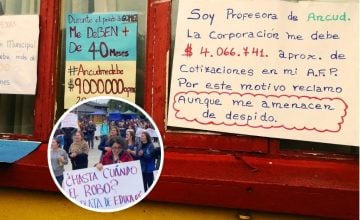 Municipal
DURANTE el periodo de GOMEZ
Me DeBEN +
De 40 Meses
#Ancudmedebe
$9000000 apro
Soy Profesora de Ancud.
La Corporación me debe
$ 4.066.741. aprox. de
Cotizaciones en mi A.F.P.
Por este motivo reclamo
Aunque me amenacen
de despido.
¿HASTA CUÁNDO
EL ROBO?